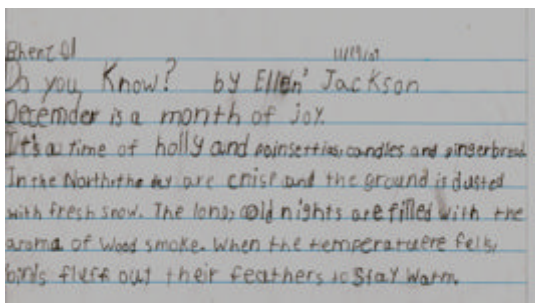 11/19/07
Do you Know? by Ellen' Jackson
Decemder is a month of joy.
It's a time of holly and poinsertias, candles and gingerbread
In the North, the day are crisp and the ground is dusted
with fresh snow. The long, cold nights are filled with the
aroma of wood smoke. When the temperatuere fells,
birds fluff out their feathers to stay warm.